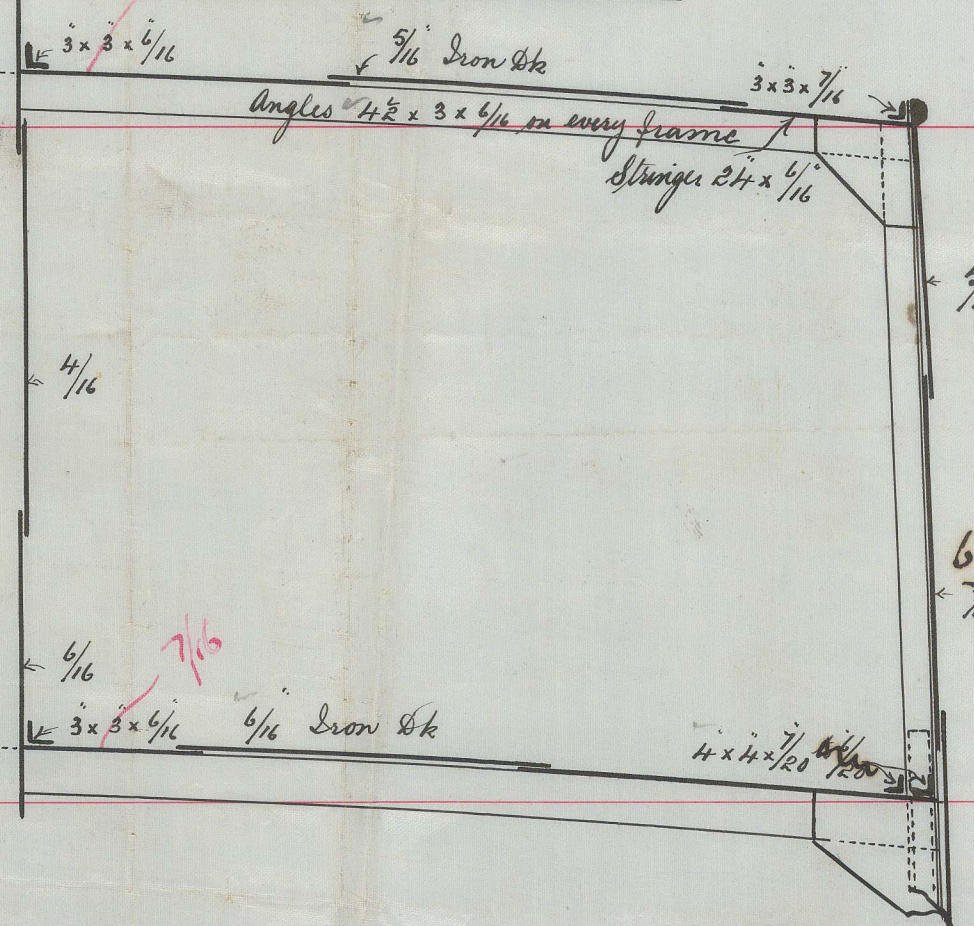 3" x 3" x 6/16"
5/16" Iron Dk
3" x 3" x 7/16"
Angles 4½ x 3 x 6/16 on every frame
Stringer 24" x 6/16"
4/16
6/16
7/16
3" x 3" x 6/16"
6/16" Iron Dk
4" x 4" x 7/20"